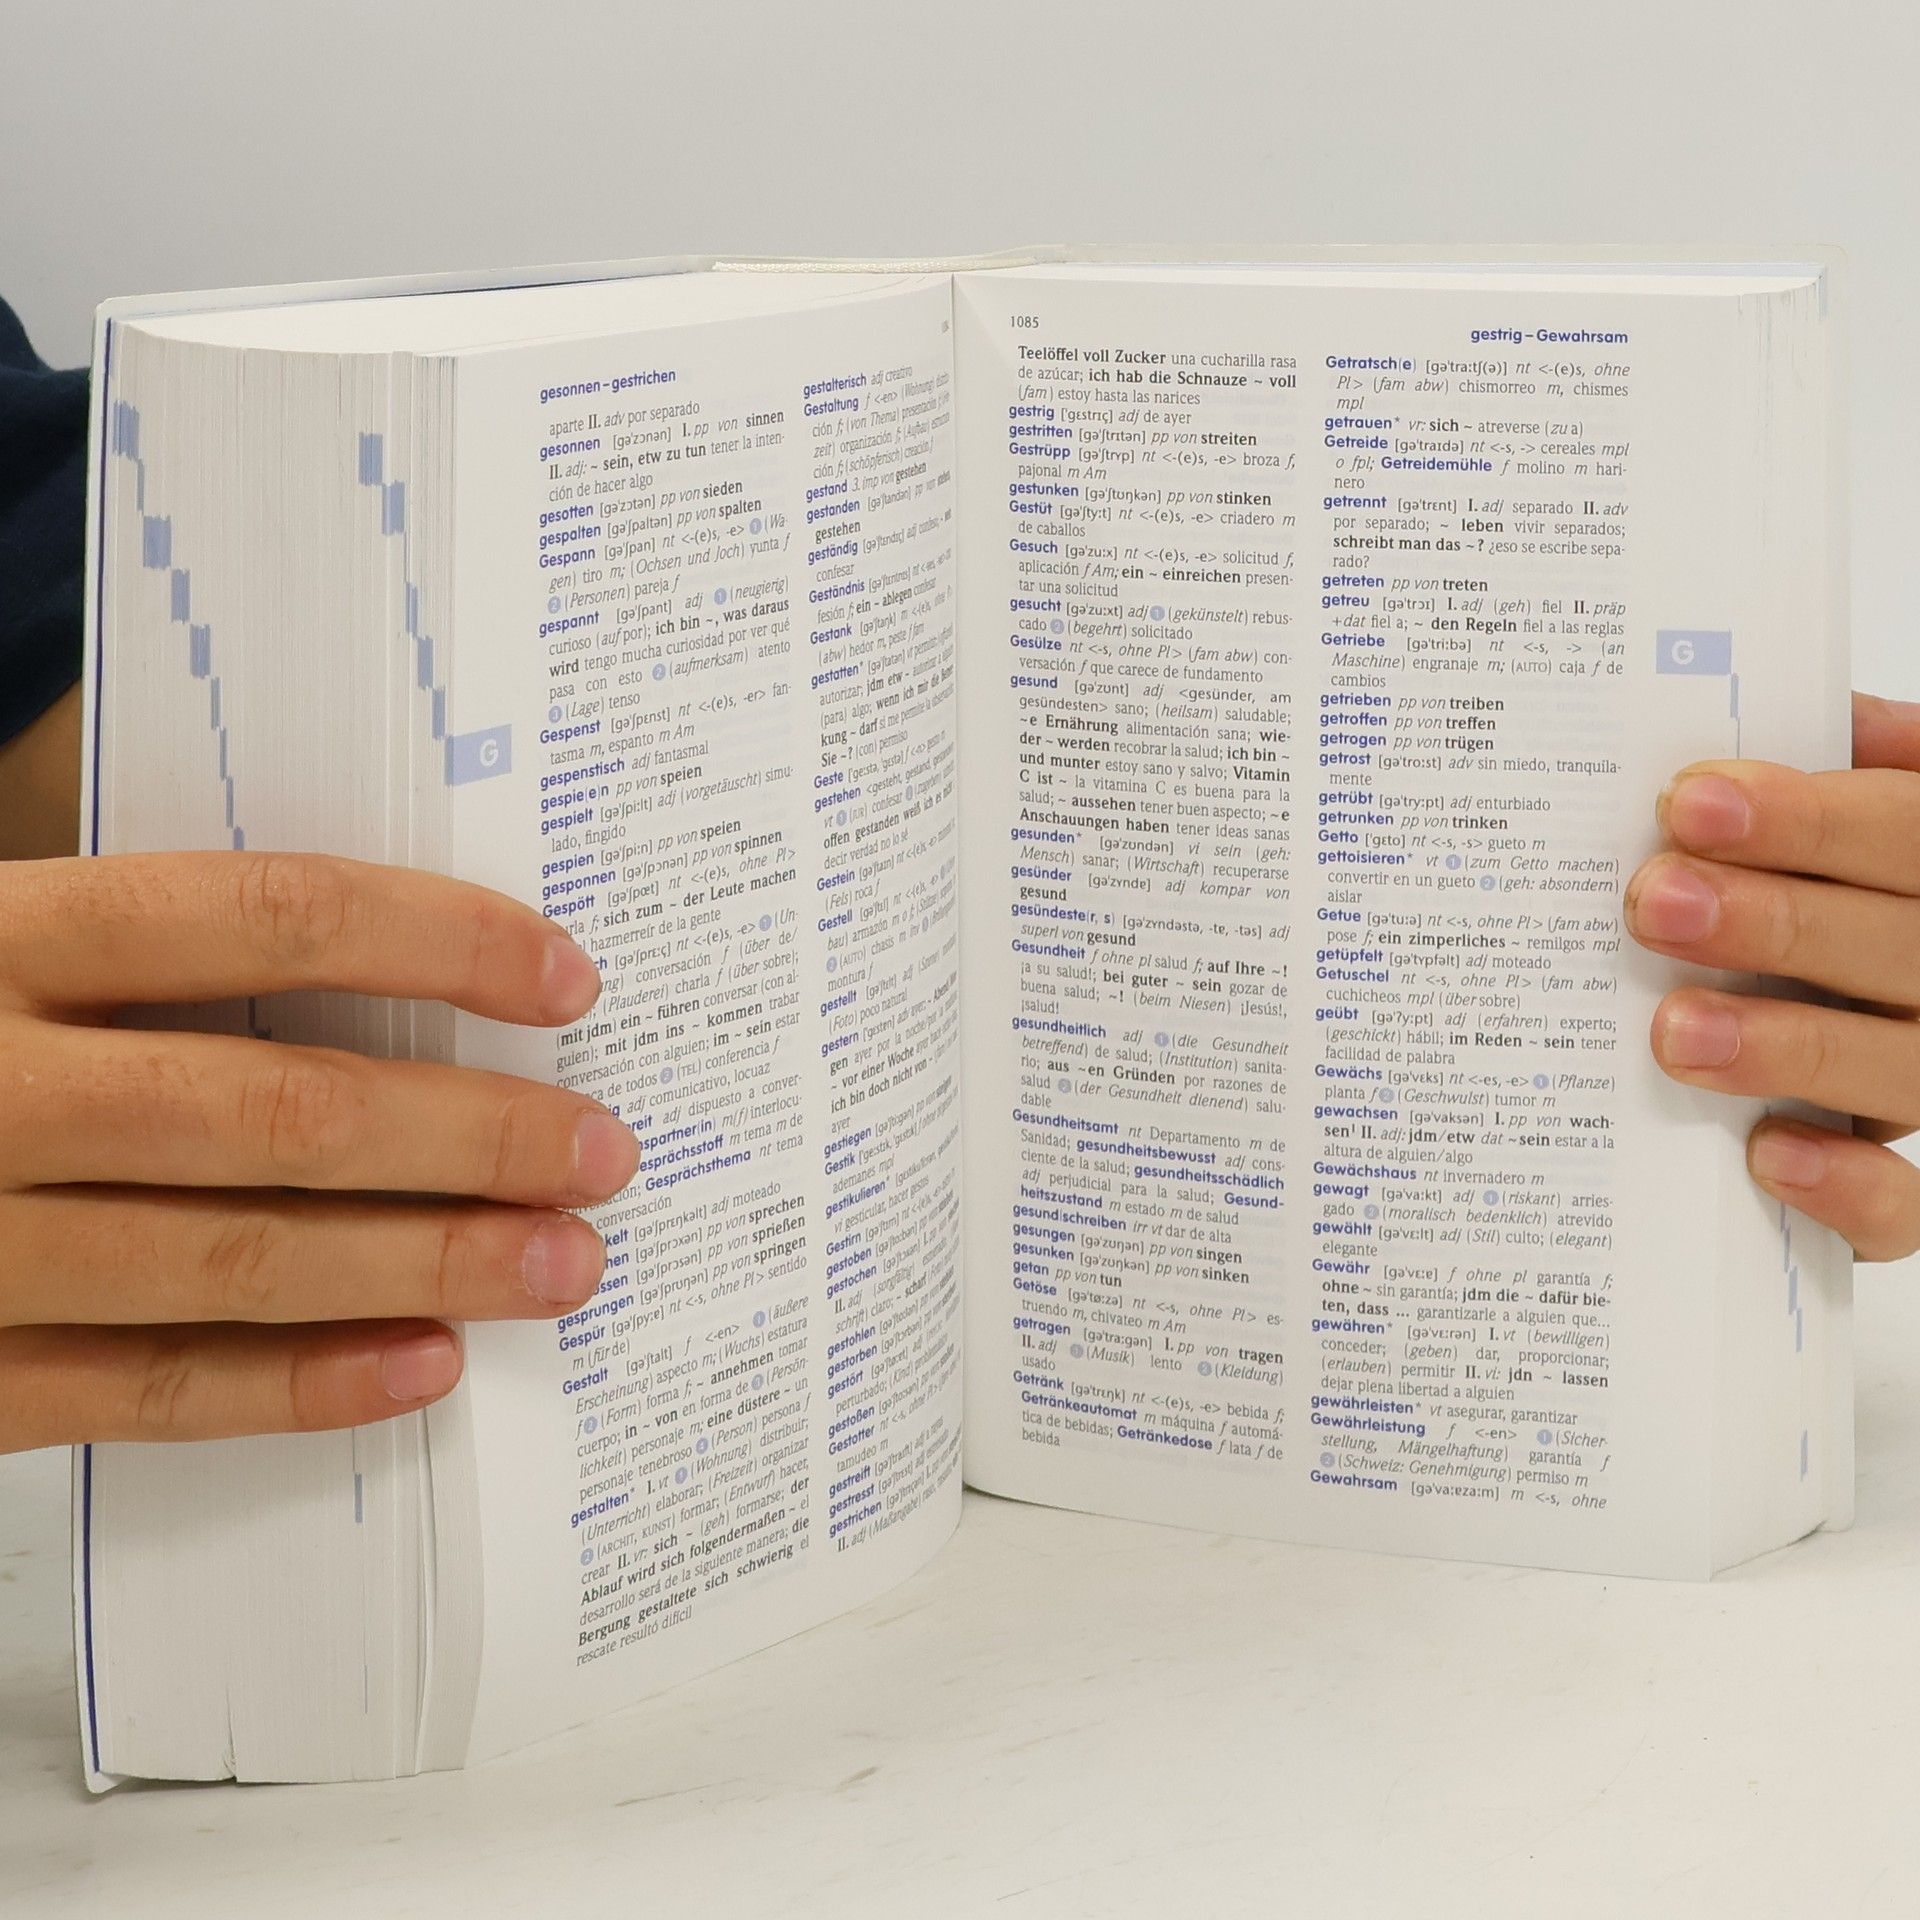 gesonnen–gestrichen
aparte II. adv por separado
gesonnen [gəˈzɔnən] I. pp von sinnen
II. adj: ~ sein, etw zu tun tener la inten-
ción de hacer algo
gesotten [gəˈzɔtən] pp von sieden
gespalten [gəˈʃpaltən] pp von spalten
Gespann [gəˈʃpan] nt <-(e)s, -e> 1 (Wa-
gen) tiro m; (Ochsen und Joch) yunta f
2 (Personen) pareja f
gespannt [gəˈʃpant] adj 1 (neugierig)
curioso (auf por); ich bin ~, was daraus
wird tengo mucha curiosidad por ver qué
pasa con esto 2 (aufmerksam) atento
3 (Lage) tenso
Gespenst [gəˈʃpɛnst] nt <-(e)s, -er> fan-
tasma m, espanto m Am
gespenstisch adj fantasmal
gespie(e)n pp von speien
gespielt [gəˈʃpiːlt] adj (vorgetäuscht) simu-
lado, fingido
gespien [gəˈʃpiːn] pp von speien
gesponnen [gəˈʃpɔnən] pp von spinnen
Gespött [gəˈʃpœt] nt <-(e)s, ohne Pl>
f; sich zum ~ der Leute machen
hazmerreír de la gente
[gəˈʃprɛːç] nt <-(e)s, -e> 1 (Un-
conversación f (über de/
(Plauderei) charla f (über sobre);
(mit jdm) ein ~ führen conversar (con al-
guien); mit jdm ins ~ kommen trabar
conversación con alguien; im ~ sein estar
de todos 2 (TEL) conferencia f
adj comunicativo, locuaz
adj dispuesto a conver-
m(f) interlocu-
m tema m de
Gesprächsthema nt tema
conversación
[gəˈʃprɛŋkəlt] adj moteado
[gəˈʃprɔxən] pp von sprechen
[gəˈʃprɔsən] pp von sprießen
gesprungen [gəˈʃprʊŋən] pp von springen
Gespür [gəˈʃpyːɐ] nt <-s, ohne Pl> sentido
m (für de)
Gestalt [gəˈʃtalt] f <-en> 1 (äußere
Erscheinung) aspecto m; (Wuchs) estatura
f 2 (Form) forma f; ~ annehmen tomar
cuerpo; in ~ von en forma de 3 (Persön-
lichkeit) personaje m; eine düstere ~ un
personaje tenebroso 4 (Person) persona f
gestalten* I. vt 1 (Wohnung) distribuir;
(Unterricht) elaborar; (Freizeit) organizar
2 (ARCHIT, KUNST) formar; (Entwurf) hacer,
crear II. vr: sich ~ (geh) formarse; der
Ablauf wird sich folgendermaßen ~ el
desarrollo será de la siguiente manera; die
Bergung gestaltete sich schwierig el
rescate resultó difícil
gestalterisch adj creativo
Gestaltung f <-en> (Wohnung)
ción f; (von Thema) presentación f;
zeit) organización f; (Aufbau)
ción f; (schöpferisch) creación f
gestand 3. imp von gestehen
gestanden [gəˈʃtandən] pp von stehen
gestehen
geständig [gəˈʃtɛndɪç] adj confeso;
confesar
Geständnis [gəˈʃtɛntnɪs] nt
fesión f; ein ~ ablegen confesar
Gestank [gəˈʃtaŋk] m <-(e)s, ohne
(abw) hedor m, peste f fam
gestatten* [gəˈʃtatən]
autorizar; jdm etw ~ autorizar a
(para) algo; wenn ich mir die
kung ~ darf si me permite la
Sie ~? (con) permiso
Geste
gestehen <gesteht, gestand, gestanden>
vt 1 (JUR) confesar
offen gestanden weiß ich es
decir verdad no lo sé
Gestein [gəˈʃtaɪn] nt <-(e)s, -e>
(Fels) roca f
Gestell [gəˈʃtɛl] nt <-(e)s, -e>
bau) armazón m o f;
2 (AUTO) chasis m inv
montura f
gestellt [gəˈʃtɛlt] adj
(Foto) poco natural
gestern [ˈgɛstɐn] adv ayer;
gen ayer por la noche/por la
~ vor einer Woche
ich bin doch nicht von ~
ayer
gestiegen [gəˈʃtiːgən] pp von steigen
Gestik
ademanes mpl
gestikulieren*
vi gesticular, hacer gestos
Gestirn
gestoben
gestochen
II. adj (sorgfältig)
schrift) claro; ~ scharf
gestohlen
gestorben
gestört
perturbado; (Kind)
gestoßen
Gestotter
tamudeo m
gestreift
gestresst
gestrichen
II. adj (Maßangabe)
G
1085
gestrig–Gewahrsam
Teelöffel voll Zucker una cucharilla rasa
de azúcar; ich hab die Schnauze ~ voll
(fam) estoy hasta las narices
gestrig [ˈgɛstrɪç] adj de ayer
gestritten [gəˈʃtrɪtən] pp von streiten
Gestrüpp [gəˈʃtrʏp] nt <-(e)s, -e> broza f,
pajonal m Am
gestunken [gəˈʃtʊŋkən] pp von stinken
Gestüt [gəˈʃtyːt] nt <-(e)s, -e> criadero m
de caballos
Gesuch [gəˈzuːx] nt <-(e)s, -e> solicitud f,
aplicación f Am; ein ~ einreichen presen-
tar una solicitud
gesucht [gəˈzuːxt] adj 1 (gekünstelt) rebus-
cado 2 (begehrt) solicitado
Gesülze nt <-s, ohne Pl> (fam abw) con-
versación f que carece de fundamento
gesund [gəˈzʊnt] adj <gesünder, am
gesündesten> sano; (heilsam) saludable;
~e Ernährung alimentación sana; wie-
der ~ werden recobrar la salud; ich bin ~
und munter estoy sano y salvo; Vitamin
C ist ~ la vitamina C es buena para la
salud; ~ aussehen tener buen aspecto; ~e
Anschauungen haben tener ideas sanas
gesunden* [gəˈzʊndən] vi sein (geh:
Mensch) sanar; (Wirtschaft) recuperarse
gesünder [gəˈzʏndɐ] adj kompar von
gesund
gesündeste(r, s) [gəˈzʏndəstə, -tɐ, -təs] adj
superl von gesund
Gesundheit f ohne pl salud f; auf Ihre ~!
¡a su salud!; bei guter ~ sein gozar de
buena salud; ~! (beim Niesen) ¡Jesús!,
¡salud!
gesundheitlich adj 1 (die Gesundheit
betreffend) de salud; (Institution) sanita-
rio; aus ~en Gründen por razones de
salud 2 (der Gesundheit dienend) salu-
dable
Gesundheitsamt nt Departamento m de
Sanidad; gesundheitsbewusst adj cons-
ciente de la salud; gesundheitsschädlich
adj perjudicial para la salud; Gesund-
heitszustand m estado m de salud
gesund|schreiben irr vt dar de alta
gesungen [gəˈzʊŋən] pp von singen
gesunken [gəˈzʊŋkən] pp von sinken
getan pp von tun
Getöse [gəˈtøːzə] nt <-s, ohne Pl> es-
truendo m, chivateo m Am
getragen [gəˈtraːgən] I. pp von tragen
II. adj 1 (Musik) lento 2 (Kleidung)
usado
Getränk [gəˈtrɛŋk] nt <-(e)s, -e> bebida f;
Getränkeautomat m máquina f automá-
tica de bebidas; Getränkedose f lata f de
bebida
Getratsch(e) [gəˈtraːtʃ(ə)] nt <-(e)s, ohne
Pl> (fam abw) chismorreo m, chismes
mpl
getrauen* vr: sich ~ atreverse (zu a)
Getreide [gəˈtraɪdə] nt <-s, -> cereales mpl
o fpl; Getreidemühle f molino m hari-
nero
getrennt [gəˈtrɛnt] I. adj separado II. adv
por separado; ~ leben vivir separados;
schreibt man das ~? ¿eso se escribe sepa-
rado?
getreten pp von treten
getreu [gəˈtrɔɪ] I. adj (geh) fiel II. präp
+dat fiel a; ~ den Regeln fiel a las reglas
Getriebe [gəˈtriːbə] nt <-s, -> (an
Maschine) engranaje m; (AUTO) caja f de
cambios
getrieben pp von treiben
getroffen pp von treffen
getrogen pp von trügen
getrost [gəˈtroːst] adv sin miedo, tranquila-
mente
getrübt [gəˈtryːpt] adj enturbiado
getrunken pp von trinken
Getto [ˈgɛto] nt <-s, -s> gueto m
gettoisieren* vt 1 (zum Getto machen)
convertir en un gueto 2 (geh: absondern)
aislar
Getue [gəˈtuːə] nt <-s, ohne Pl> (fam abw)
pose f; ein zimperliches ~ remilgos mpl
getüpfelt [gəˈtʏpfəlt] adj moteado
Getuschel nt <-s, ohne Pl> (fam abw)
cuchicheos mpl (über sobre)
geübt [gəˈʔyːpt] adj (erfahren) experto;
(geschickt) hábil; im Reden ~ sein tener
facilidad de palabra
Gewächs [gəˈvɛks] nt <-es, -e> 1 (Pflanze)
planta f 2 (Geschwulst) tumor m
gewachsen [gəˈvaksən] I. pp von wach-
sen¹ II. adj: jdm/etw dat ~sein estar a la
altura de alguien/algo
Gewächshaus nt invernadero m
gewagt [gəˈvaːkt] adj 1 (riskant) arries-
gado 2 (moralisch bedenklich) atrevido
gewählt [gəˈvɛːlt] adj (Stil) culto; (elegant)
elegante
Gewähr [gəˈvɛːɐ] f ohne pl garantía f;
ohne ~ sin garantía; jdm die ~ dafür bie-
ten, dass ... garantizarle a alguien que...
gewähren* [gəˈvɛːrən] I. vt (bewilligen)
conceder; (geben) dar, proporcionar;
(erlauben) permitir II. vi: jdn ~ lassen
dejar plena libertad a alguien
gewährleisten* vt asegurar, garantizar
Gewährleistung f <-en> 1 (Sicher-
stellung, Mängelhaftung) garantía f
2 (Schweiz: Genehmigung) permiso m
Gewahrsam [gəˈvaːɐzaːm] m <-s, ohne
G